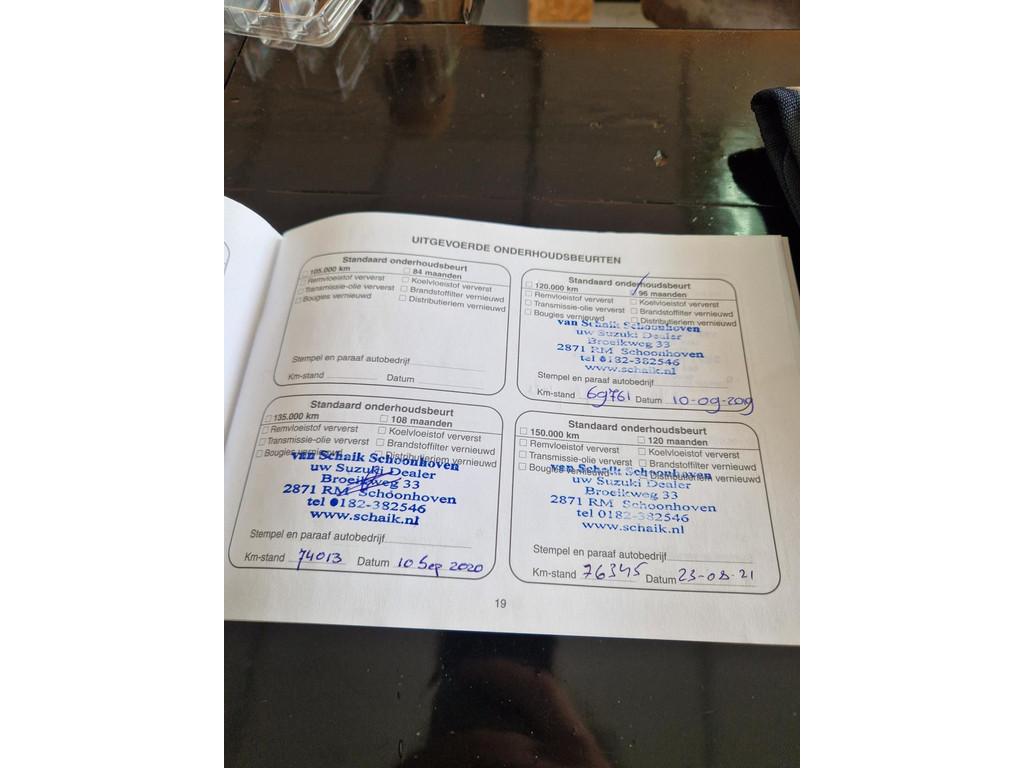 UITGEVOERDE ONDERHOUDSBEURTEN
Standaard onderhoudsbeurt
105.000 km 84 maanden
Remvloeistof ververst Koelvloeistof ververst
Transmissie-olie ververst Brandstoffilter vernieuwd
Bougies vernieuwd Distributieriem vernieuwd
Stempel en paraaf autobedrijf
Km-stand Datum
Standaard onderhoudsbeurt
120.000 km 96 maanden
Remvloeistof ververst Koelvloeistof ververst
Transmissie-olie ververst Brandstoffilter vernieuwd
Bougies vernieuwd Distributieriem vernieuwd
van Schaik Schoonhoven
uw Suzuki Dealer
Broeikweg 33
2871 RM Schoonhoven
tel 0182-382546
www.schaik.nl
Stempel en paraaf autobedrijf
Km-stand 69761 Datum 10-09-2019
Standaard onderhoudsbeurt
135.000 km 108 maanden
Remvloeistof ververst Koelvloeistof ververst
Transmissie-olie ververst Brandstoffilter vernieuwd
Bougies vernieuwd Distributieriem vernieuwd
van Schaik Schoonhoven
uw Suzuki Dealer
Broeikweg 33
2871 RM Schoonhoven
tel 0182-382546
www.schaik.nl
Stempel en paraaf autobedrijf
Km-stand 74013 Datum 10 Sep 2020
Standaard onderhoudsbeurt
150.000 km 120 maanden
Remvloeistof ververst Koelvloeistof ververst
Transmissie-olie ververst Brandstoffilter vernieuwd
Bougies vernieuwd Distributieriem vernieuwd
van Schaik Schoonhoven
uw Suzuki Dealer
Broeikweg 33
2871 RM Schoonhoven
tel 0182-382546
www.schaik.nl
Stempel en paraaf autobedrijf
Km-stand 76345 Datum 23-08-21
19